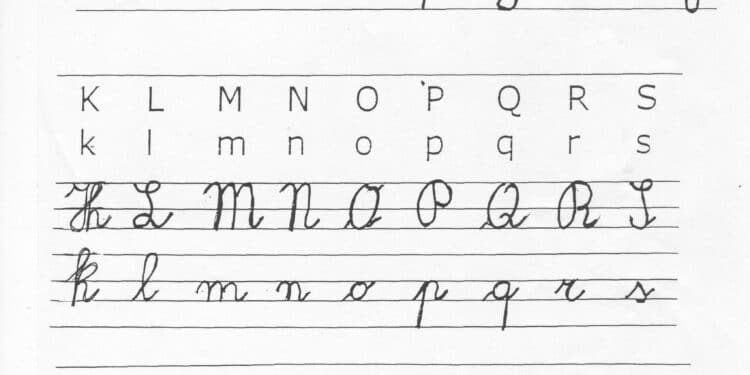 K L M N O P Q R S
k l m n o p q r s
K L M N O P Q R S
k l m n o p q r s